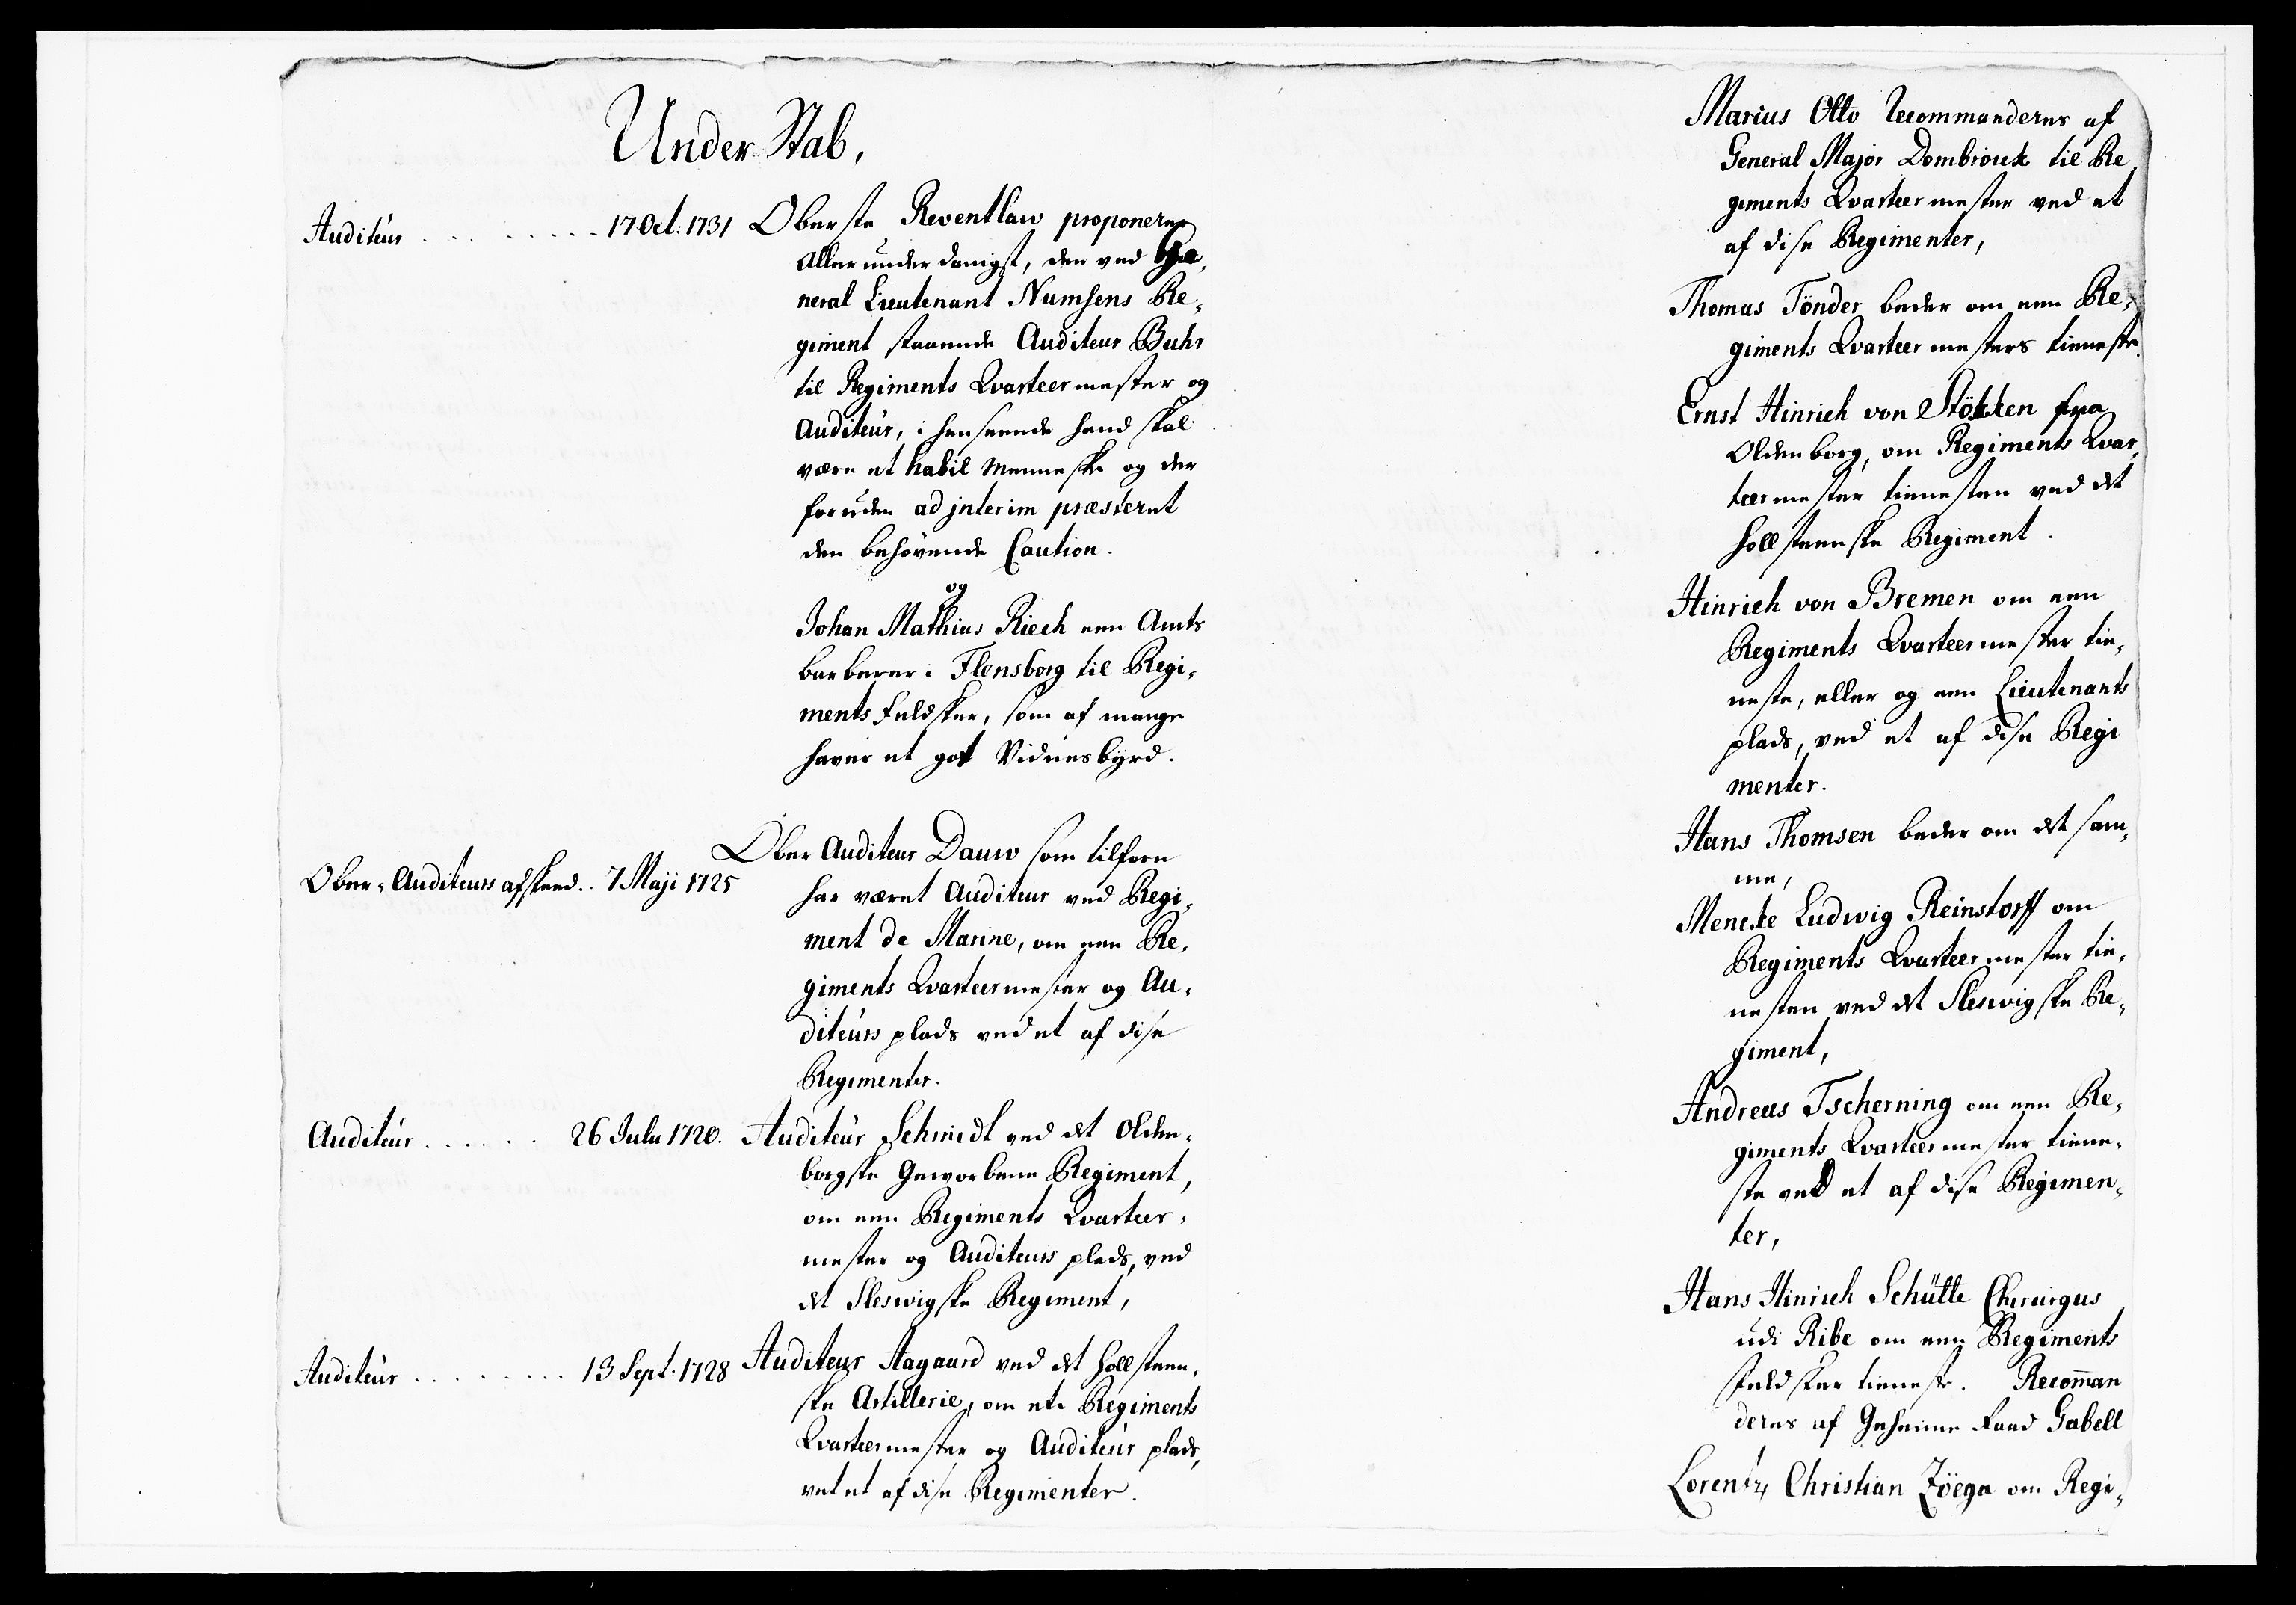 Under Stab,
Auditeur . . . . . . . . . 17 Oct: 1731 Oberste Reventlaw proponerer
allerunderdanigst, den ved Ge-
neral Lieutenant Numsens Re-
giment staaende Auditeur Buhr
til Regiments Qvarteermester og
Auditeur, i henseende hand skal
være et habil Menneske og der
foruden ad jnterim præsteret
den behövende Caution.
og
Johan Mathias Riech een Amts
barberer i Flensborg til Regi-
ments feldsker, som af mange
haver et got Vidnesbyrd.
Ober-Auditeurs afskeed . . 7 Maji 1725 Ober Auditeur Dauw som tilforn
har været Auditeur ved Regi-
ment de Marine, om een Re-
giments Qvarteermester og Au-
diteurs plads ved et af dise
Regimenter.
Auditeur . . . . . . 26 Julii 1720. Auditeur Schmidt ved det Olden-
borgske Geworbene Regiment,
om een Regiments Qvarteer-
mester og Auditeurs plads, ved
det Sleswigske Regiment,
Auditeur . . . . . . . . . 13 Sept: 1728 Auditeur Aagaard ved det hollsteen-
ske Artillerie, om et Regiments
Qvarteermester og Auditeur plads,
vet et af dise Regimenter.
Marius Otto Recommanderes af
General Major Dombrouck til Re
giments Qvarteermester ved et
af dise Regimenter,
Thomas Tönder beder om een Re-
giments Qvarteermesters tieneste.
Ernst Hinrich von Stökken fra
Oldenborg, om Regiments Qvar-
teermester tienesten ved det
hollsteenske Regiment.
Hinrich von Bremen om een
Regiments Qvarteermester tie-
neste, eller og een Lieutenants
plads, ved et af dise Regi
menter.
Hans Thomsen beder om det sam-
me,
Mencke Ludwig Reinstorff om
Regiments Qvarteermester tie-
nesten ved det Sleswigske Re-
giment,
Andreas Tscherning om een Re-
giments Qvarteermester tiene-
ste ved et af dise Regimen-
ter,
Hans Hinrich Schütte Chirurgus
udi Ribe om een Regiments
feldsker tieneste. Recom̄an
deres af Geheime Raad Gabell
Lorentz Christian Zöega om Regi-